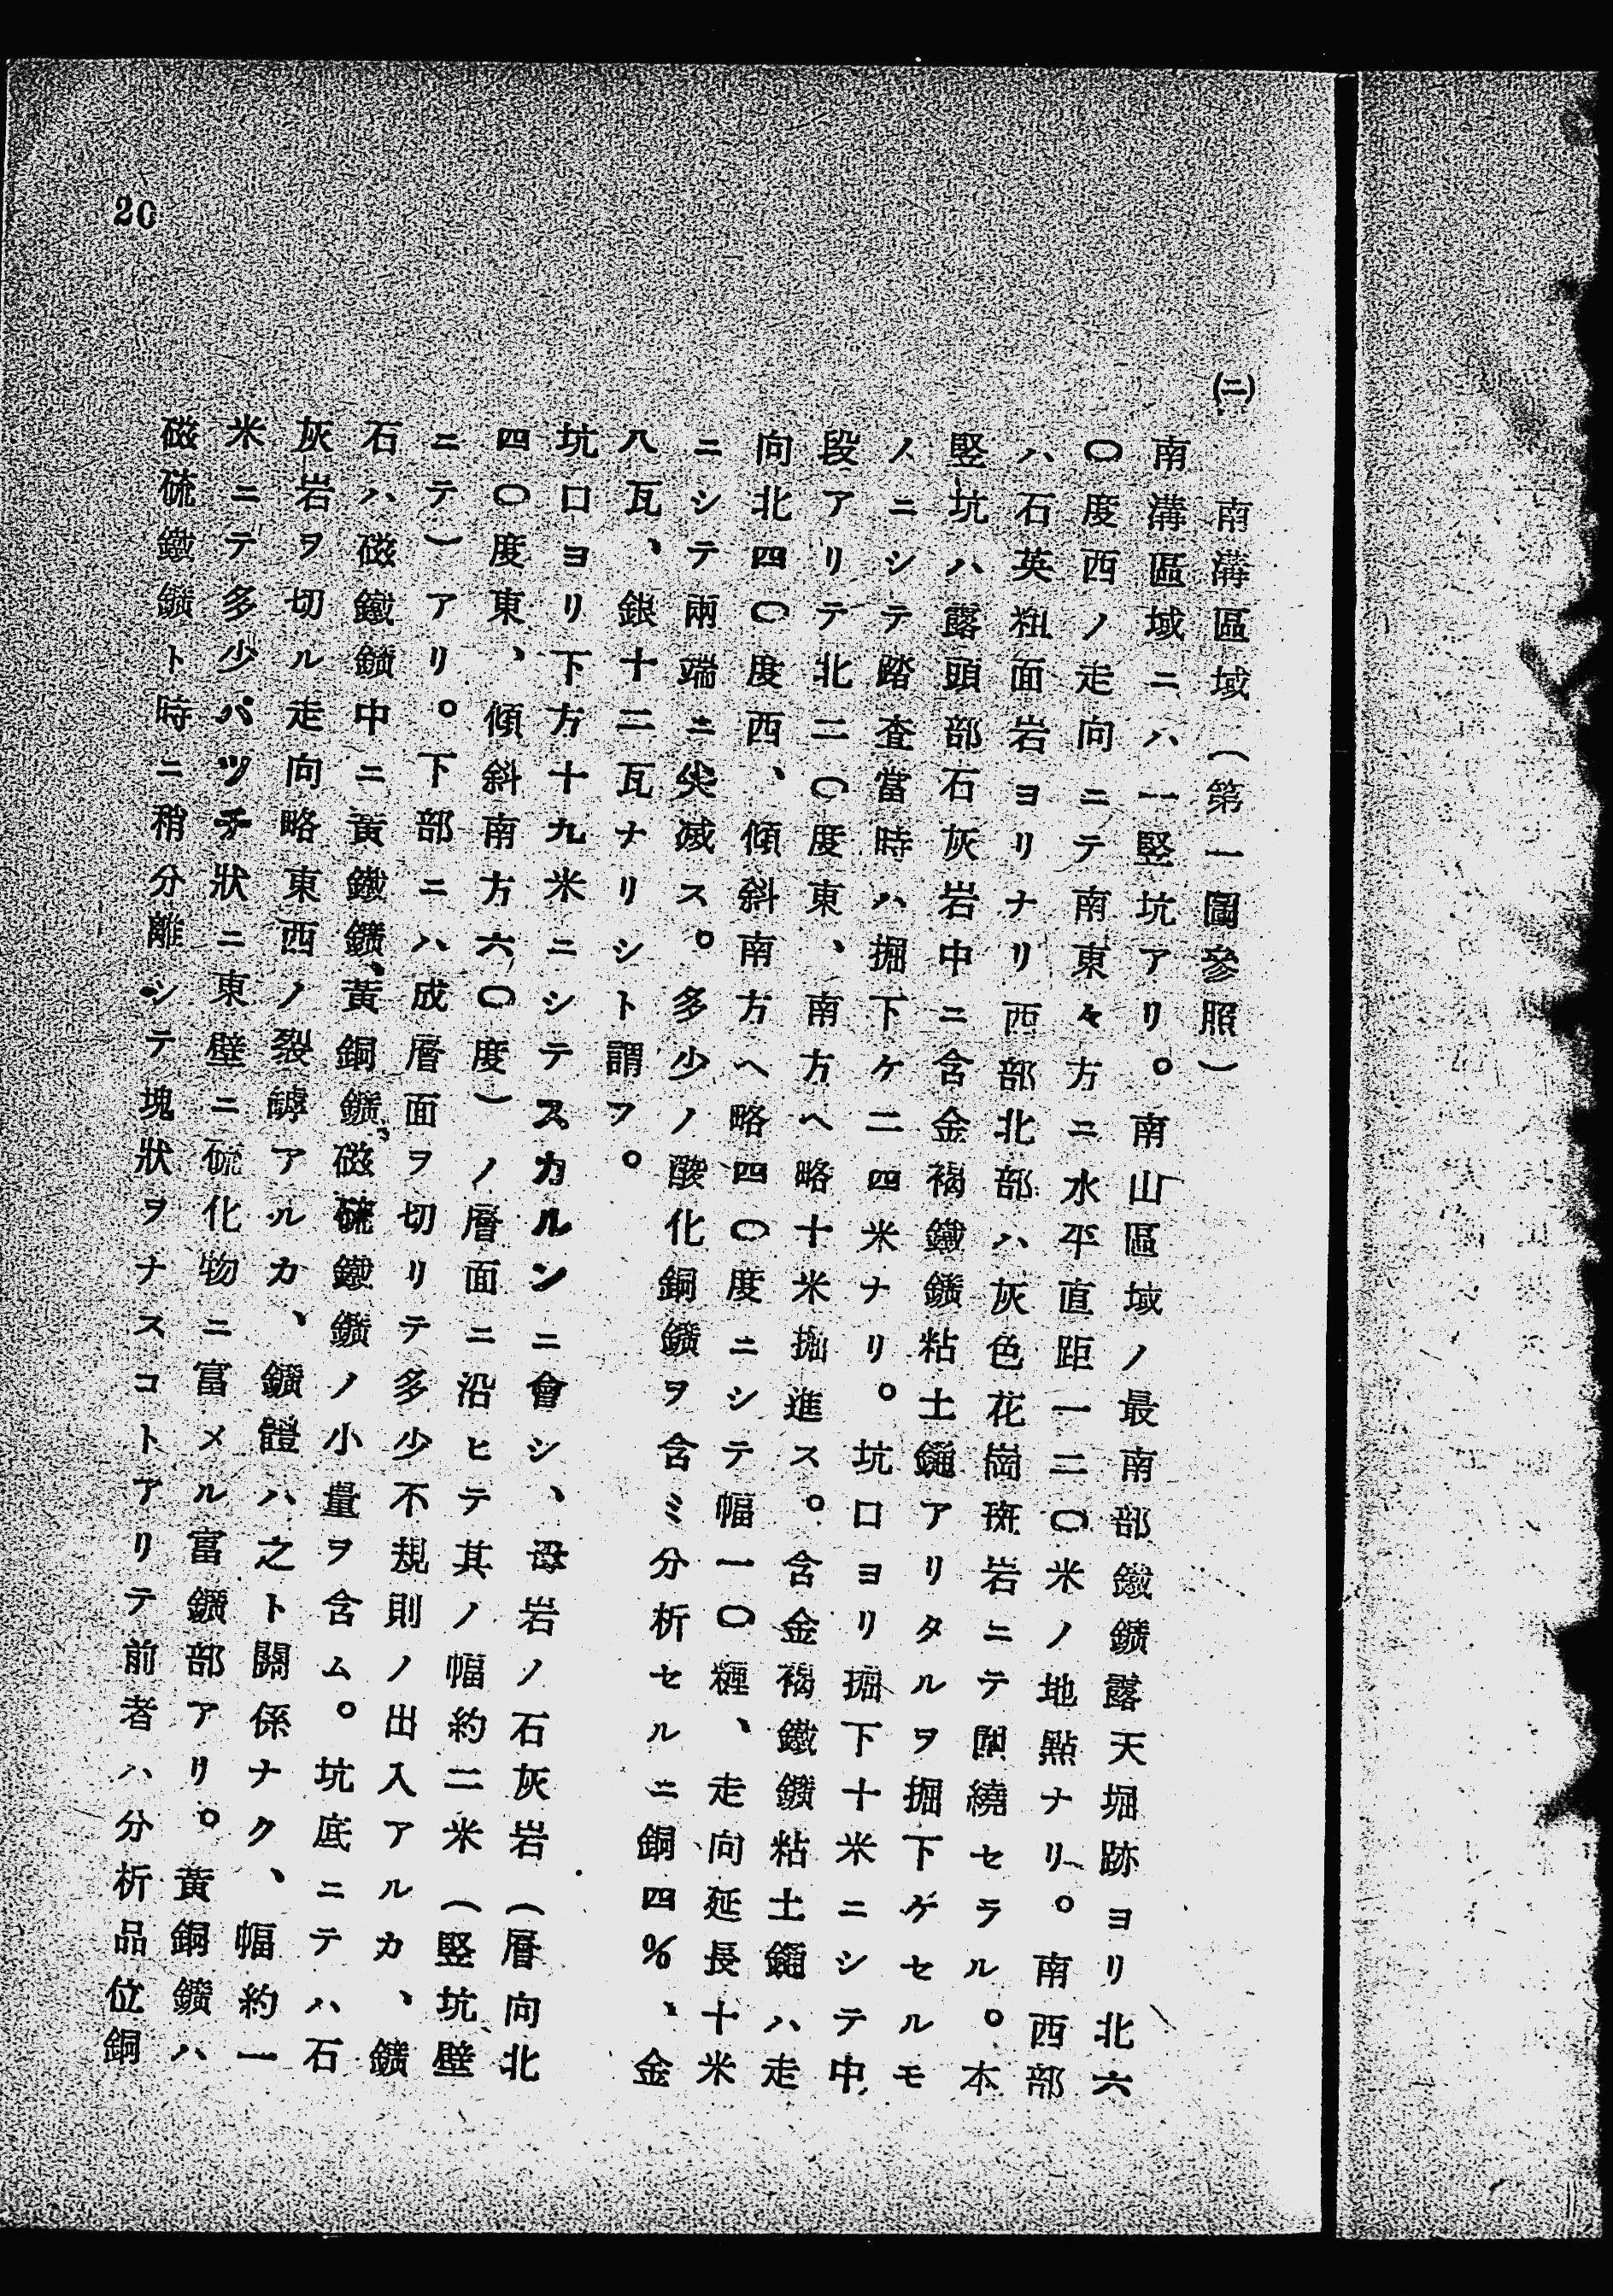 (二)　南溝區域(第一圖參照)
南溝區域ニハ一竪坑アリ。南山區域ノ最南部鐵鑛露天堀跡ヨリ北六
〇度西ノ走向ニテ南東々方ニ水平直距一二〇米ノ地點ナリ。南西部
ハ石英粗面岩ヨリナリ西部北部ハ灰色花崗斑岩ニテ圍繞セラル。本
竪坑ハ露頭部石灰岩中ニ含金褐鐵鑛粘土鑓アリタルヲ掘下ゲセルモ
ノニシテ踏査當時ハ掘下ケ二四米ナリ。坑口ヨリ掘下十米ニシテ中
段アリテ北二〇度東、南方へ略十米掘進ス。含金褐鐵鑛粘土鑓ハ走
向北四〇度西、傾斜南方へ略四〇度ニシテ幅一〇糎、走向延長十米
ニシテ兩端ニ尖滅ス。多少ノ酸化銅鑛ヲ含ミ分析セルニ銅四%、金
八瓦、銀十二瓦ナリシト謂フ。
坑口ヨリ下方十九米ニシテスカルンニ會シ、母岩ノ石灰岩(層向北
四〇度東、傾斜南方六〇度)ノ層面ニ沿ヒテ其ノ幅約二米(竪坑壁
ニテ)アリ。下部ニハ成層面ヲ切リテ多少不規則ノ出入アルカ、鑛
石ハ磁鐵鑛中ニ黃鐵鑛、黃銅鑛、磁硫鐵鑛ノ小量ヲ含ム。坑底ニテハ石
灰岩ヲ切ル走向略東西ノ裂罅アルカ、鑛體ハ之ト關係ナク、幅約一
米ニテ多少パツチ狀ニ東壁ニ硫化物ニ富メル富鑛部アリ。黃銅鑛ハ
磁硫鐵鑛ト時ニ稍分離シテ塊狀ヲナスコトアリテ前者ハ分析品位銅
20